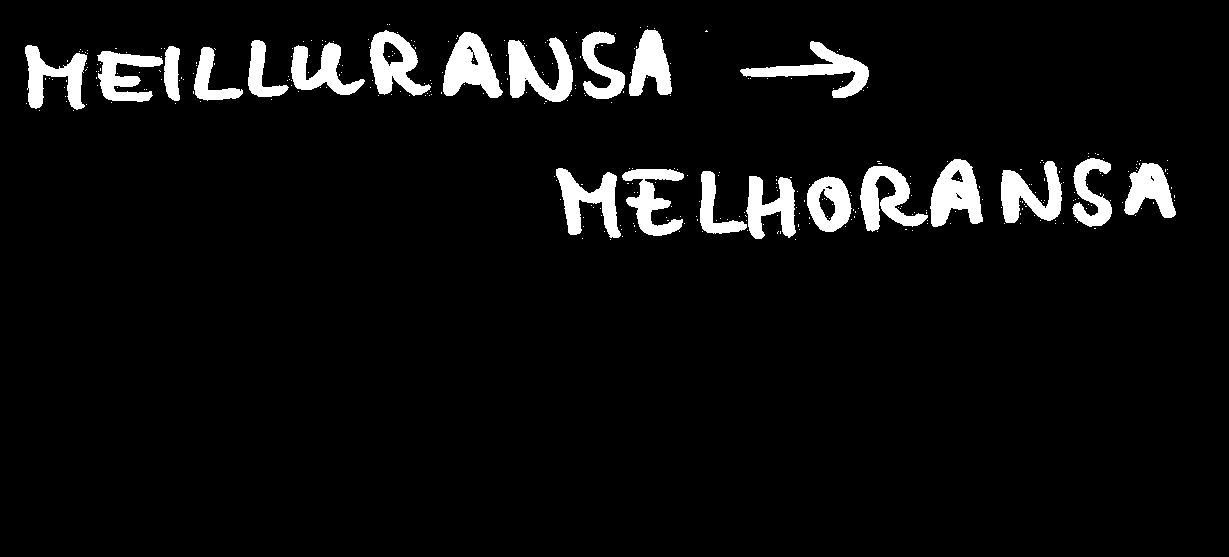 MEILLURANSA →
MELHORANSA